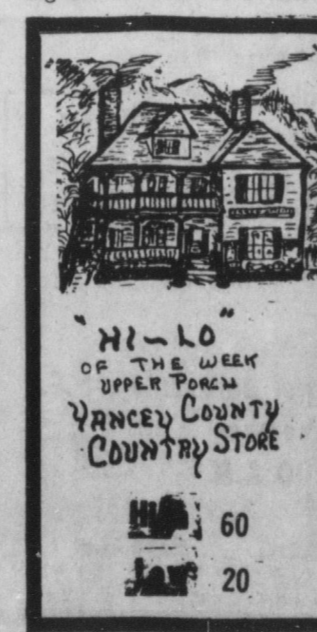 "HI-LO"
OF THE WEEK
UPPER PORCH
YANCEY COUNTY
COUNTRY STORE
HIGH 60
LOW 20